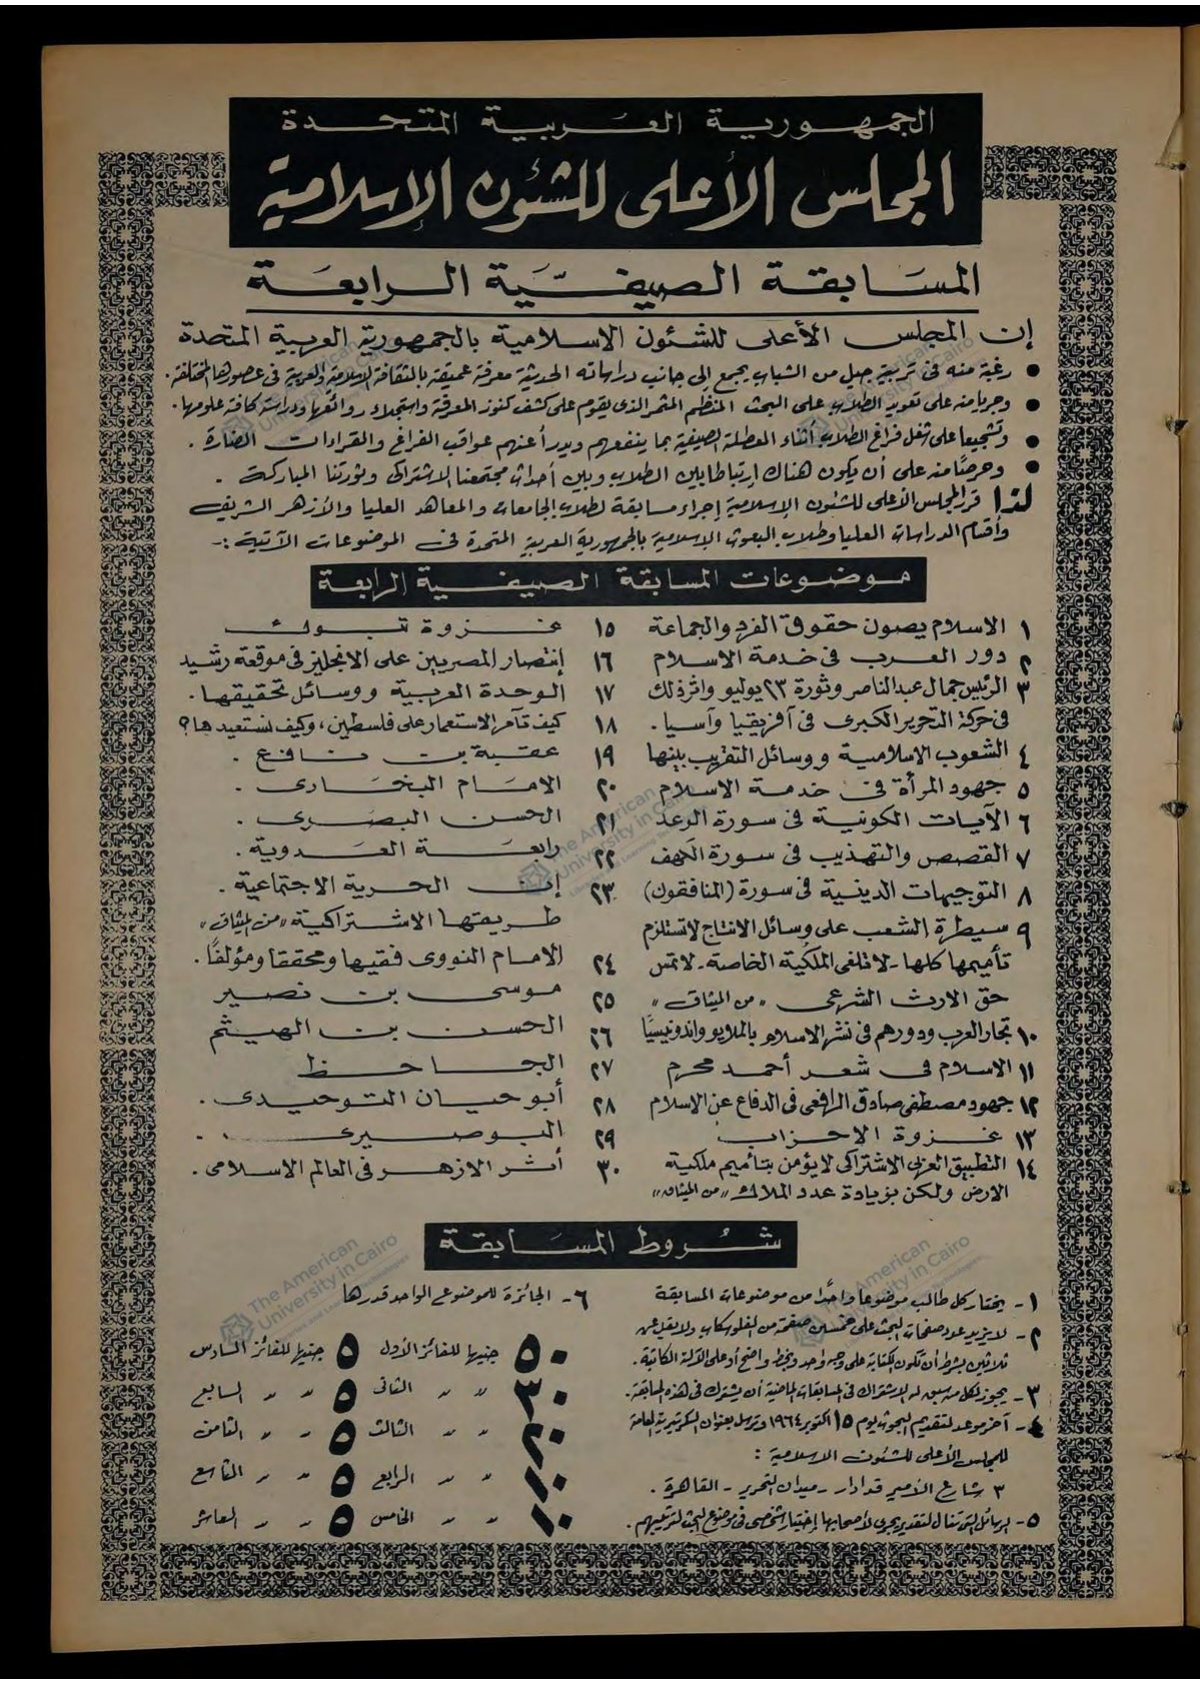 الجمهورية العربية المتحدة
المجلس الأعلى للشئون الإسلامية
المسابقة الصيفية الرابعة
إن المجلس الأعلى للشئون الاسلامية بالجمهورية العربية المتحدة
• رغبة منه فى تربية جيل من الشباب يجمع إلى جانب دراساته الحديثة معرفة عميقة بالثقافة الإسلامية والعربية فى عصورها المختلفة .
• وجريا منه على تعويد الطلاب على البحث المنظم المثمر الذى يقوم على كشف كنوز المعرفة واستجلاء روائعها ودراسة كافة علومها .
• وتشجيعا على شغل فراغ الطلاب أثناء العطلة الصيفية بما ينفعهم ويدرأ عنهم عواقب الفراغ والقراءات الضارة .
• وحرصا منه على أن يكون هناك ارتباطا بين الطلاب وبين أحداث مجتمعنا الاشتراكى وثورتنا المباركة .
لذا قرر المجلس الأعلى للشئون الإسلامية إجراء مسابقة لطلاب الجامعات والمعاهد العليا والأزهر الشريف
وأقسام الدراسات العليا وطلاب البعوث الإسلامية بالجمهورية العربية المتحدة فى الموضوعات الآتية :-
موضوعات المسابقة الصيفية الرابعة
١ الاسلام يصون حقوق الفرد والجماعة
٢ دور العرب فى خدمة الاسلام
٣ الرئيس جمال عبد الناصر وثورة ٢٣ يوليو واثر ذلك
فى حركة التحرير الكبرى فى أفريقيا وآسيا .
٤ الشعوب الاسلامية ووسائل التقريب بينها
٥ جهود المرأة فى خدمة الاسلام
٦ الآيات الكونية فى سورة الرعد
٧ القصص والتهذيب فى سورة الكهف
٨ التوجيهات الدينية فى سورة (المنافقون)
٩ سيطرة الشعب على وسائل الانتاج لا تستلزم
تأميمها كلها - لا تلغى الملكية الخاصة - لا تمس
حق الارث الشرعى "من الميثاق"
١٠ تجار العرب ودورهم فى نشر الاسلام بالملايو واندونيسيا
١١ الاسلام فى شعر أحمد محرم
١٢ جهود مصطفى صادق الرافعى فى الدفاع عن الاسلام
١٣ غزوة الاحزاب
١٤ التطبيق العربى الاشتراكى لا يؤمن بتأميم ملكية
الارض ولكن بزيادة عدد الملاك "من الميثاق"
١٥ غزوة تبوك
١٦ إنتصار المصريين على الانجليز فى موقعة رشيد
١٧ الوحدة العربية ووسائل تحقيقها .
١٨ كيف تآمر الاستعمار على فلسطين ، وكيف نستعيدها ؟
١٩ عقبة بن نافع .
٢٠ الامام البخارى .
٢١ الحسن البصرى .
٢٢ رابعة العدوية .
٢٣ إن الحرية الاجتماعية .
طريقها الاشتراكية "من الميثاق"
٢٤ الامام النووى فقيها ومحققا ومؤلفا .
٢٥ موسى بن نصير
٢٦ الحسن بن الهيثم
٢٧ الجاحظ
٢٨ أبو حيان التوحيدى .
٢٩ البوصيرى .
٣٠ أثر الازهر فى العالم الاسلامى .
شروط المسابقة
١- يختار كل طالب موضوعا واحدا من موضوعات المسابقة
٢- لا يزيد عدد صفحات البحث على خمسين صفحة من الفلوسكاب ولا يقل عن
ثلاثين بشرط أن تكون الكتابة على وجه واحد وبخط واضح أو على الآلة الكاتبة .
٣- يجوز لكل من سبق له الاشتراك فى المسابقات الماضية أن يشترك فى هذه المسابقة .
٤- آخر موعد لتقديم البحوث يوم ١٥ أكتوبر ١٩٦٤ وترسل بعنوان السكرتيرية العامة
للمجلس الأعلى للشئون الاسلامية :
٣ شارع الأمير قدادار - ميدان التحرير - القاهرة .
٥- الرسائل التى تنال التقدير يجرى لأصحابها إختبار شخصى فى موضوع البحث لترتيبهم .
٦- الجائزة للموضوع الواحد قدرها
٥٠ جنيها للفائز الأول
٣٠ " " الثانى
٢٠ " " الثالث
١٠ " " الرابع
١٠ " " الخامس
٥ جنيها للفائز السادس
٥ " " السابع
٥ " " الثامن
٥ " " التاسع
٥ " " العاشر
The American
University in Cairo